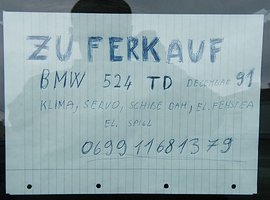 ZU FERKAUF
BMW 524 TD DECEMBE 91
KLIMA, SERVO, SCHIBE DAH, EL. FENSTEA
EL. SPIGL
0699 11681379